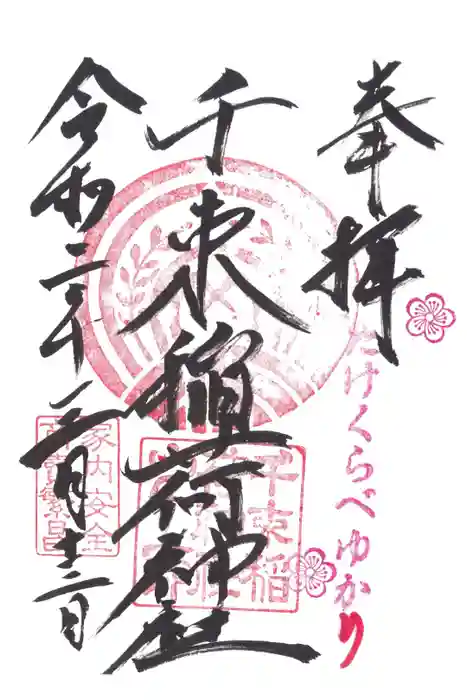 奉拝
たけくらべゆかり
千束稲荷神社
千束稲
荷神社
令和二年三月十二日
家内安全
商売繁昌